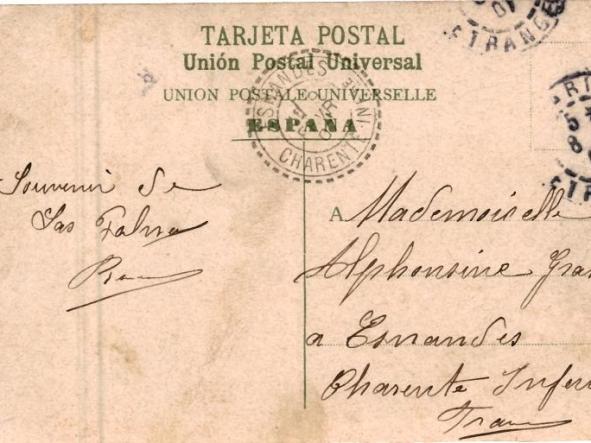 TARJETA POSTAL
Unión Postal Universal
UNION POSTALE UNIVERSELLE
ESPAÑA
ESNANDES
CHARENTE INFRE
01
ETRANGE
Souvenir de
Las Palma
A Mademoiselle
Alphonsine
a Esnandes
Charente